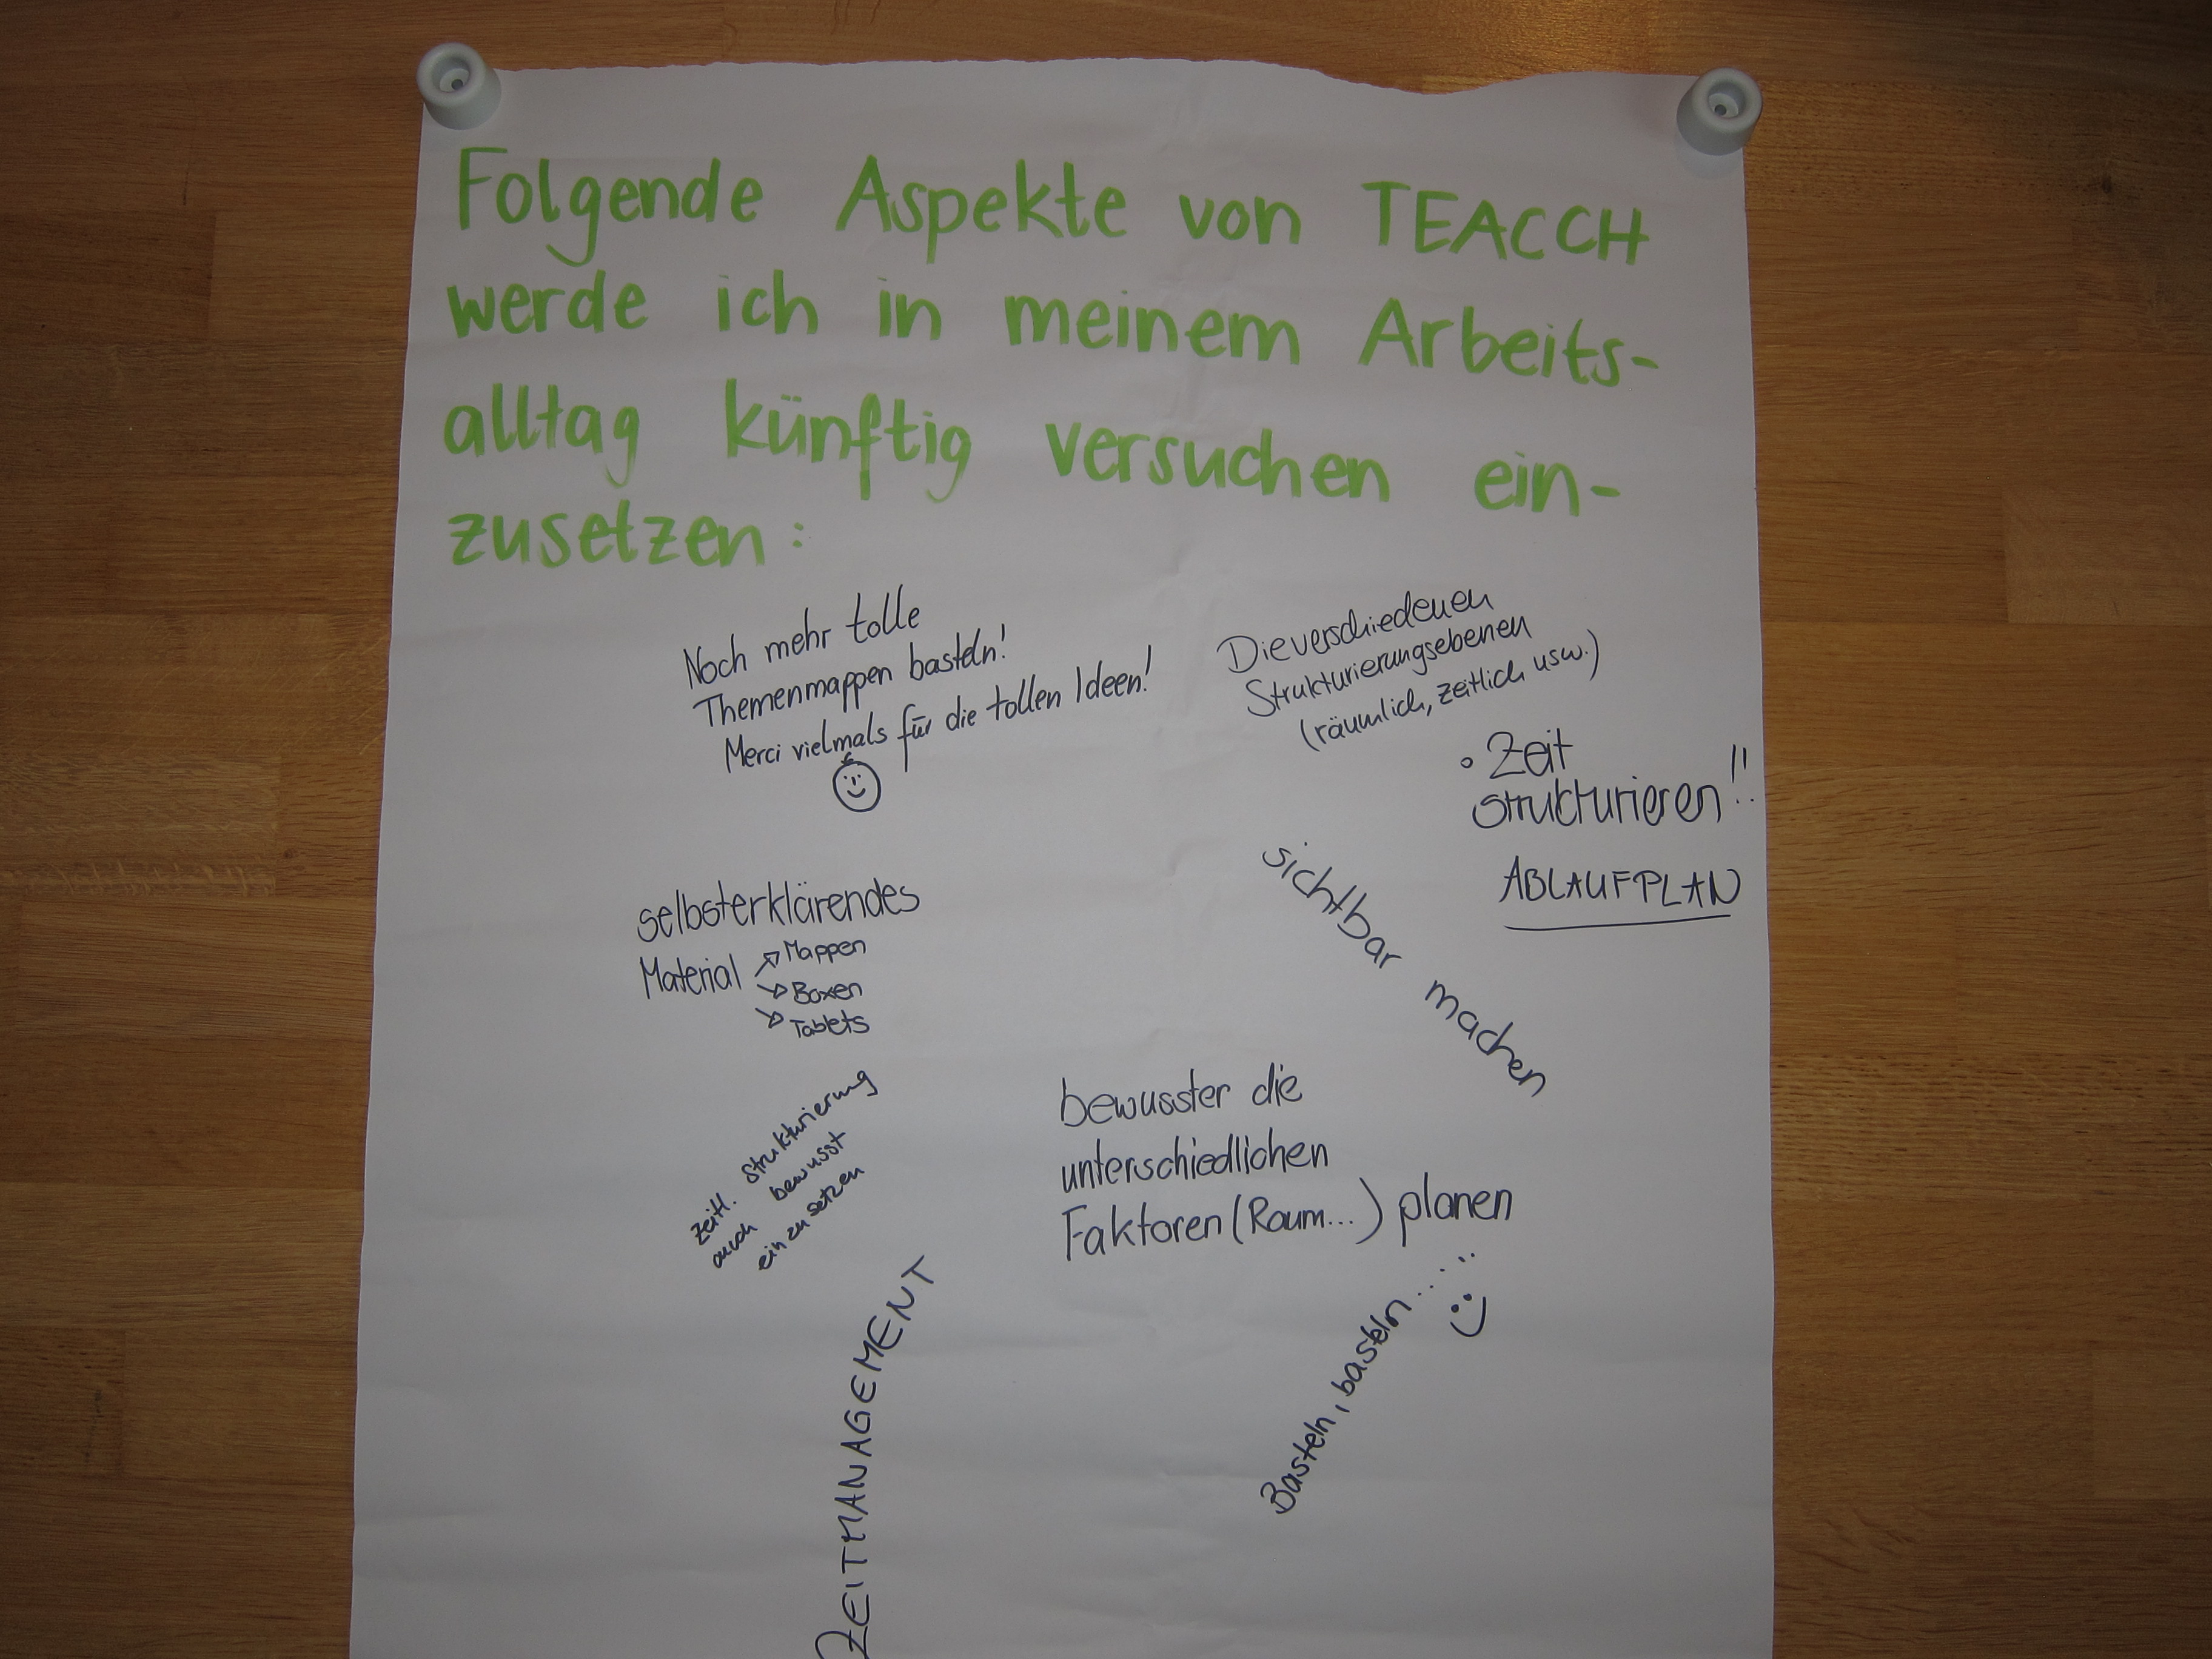 Folgende Aspekte von TEACCH
werde ich in meinem Arbeits-
alltag künftig versuchen ein-
zusetzen:
Noch mehr tolle
Themenmappen basteln!
Merci vielmals für die tollen Ideen!
Die verschiedenen
Strukturierungsebenen
(räumlich, zeitlich usw.)
• Zeit
strukturieren!!
ABLAUFPLAN
sichtbar machen
selbsterklärendes
Material → Mappen
→ Boxen
→ Tablets
zeitl. Strukturierung
auch bewusst
ein zu setzen
bewusster die
unterschiedlichen
Faktoren (Raum...) planen
Basteln, basteln......
ZEITMANAGEMENT